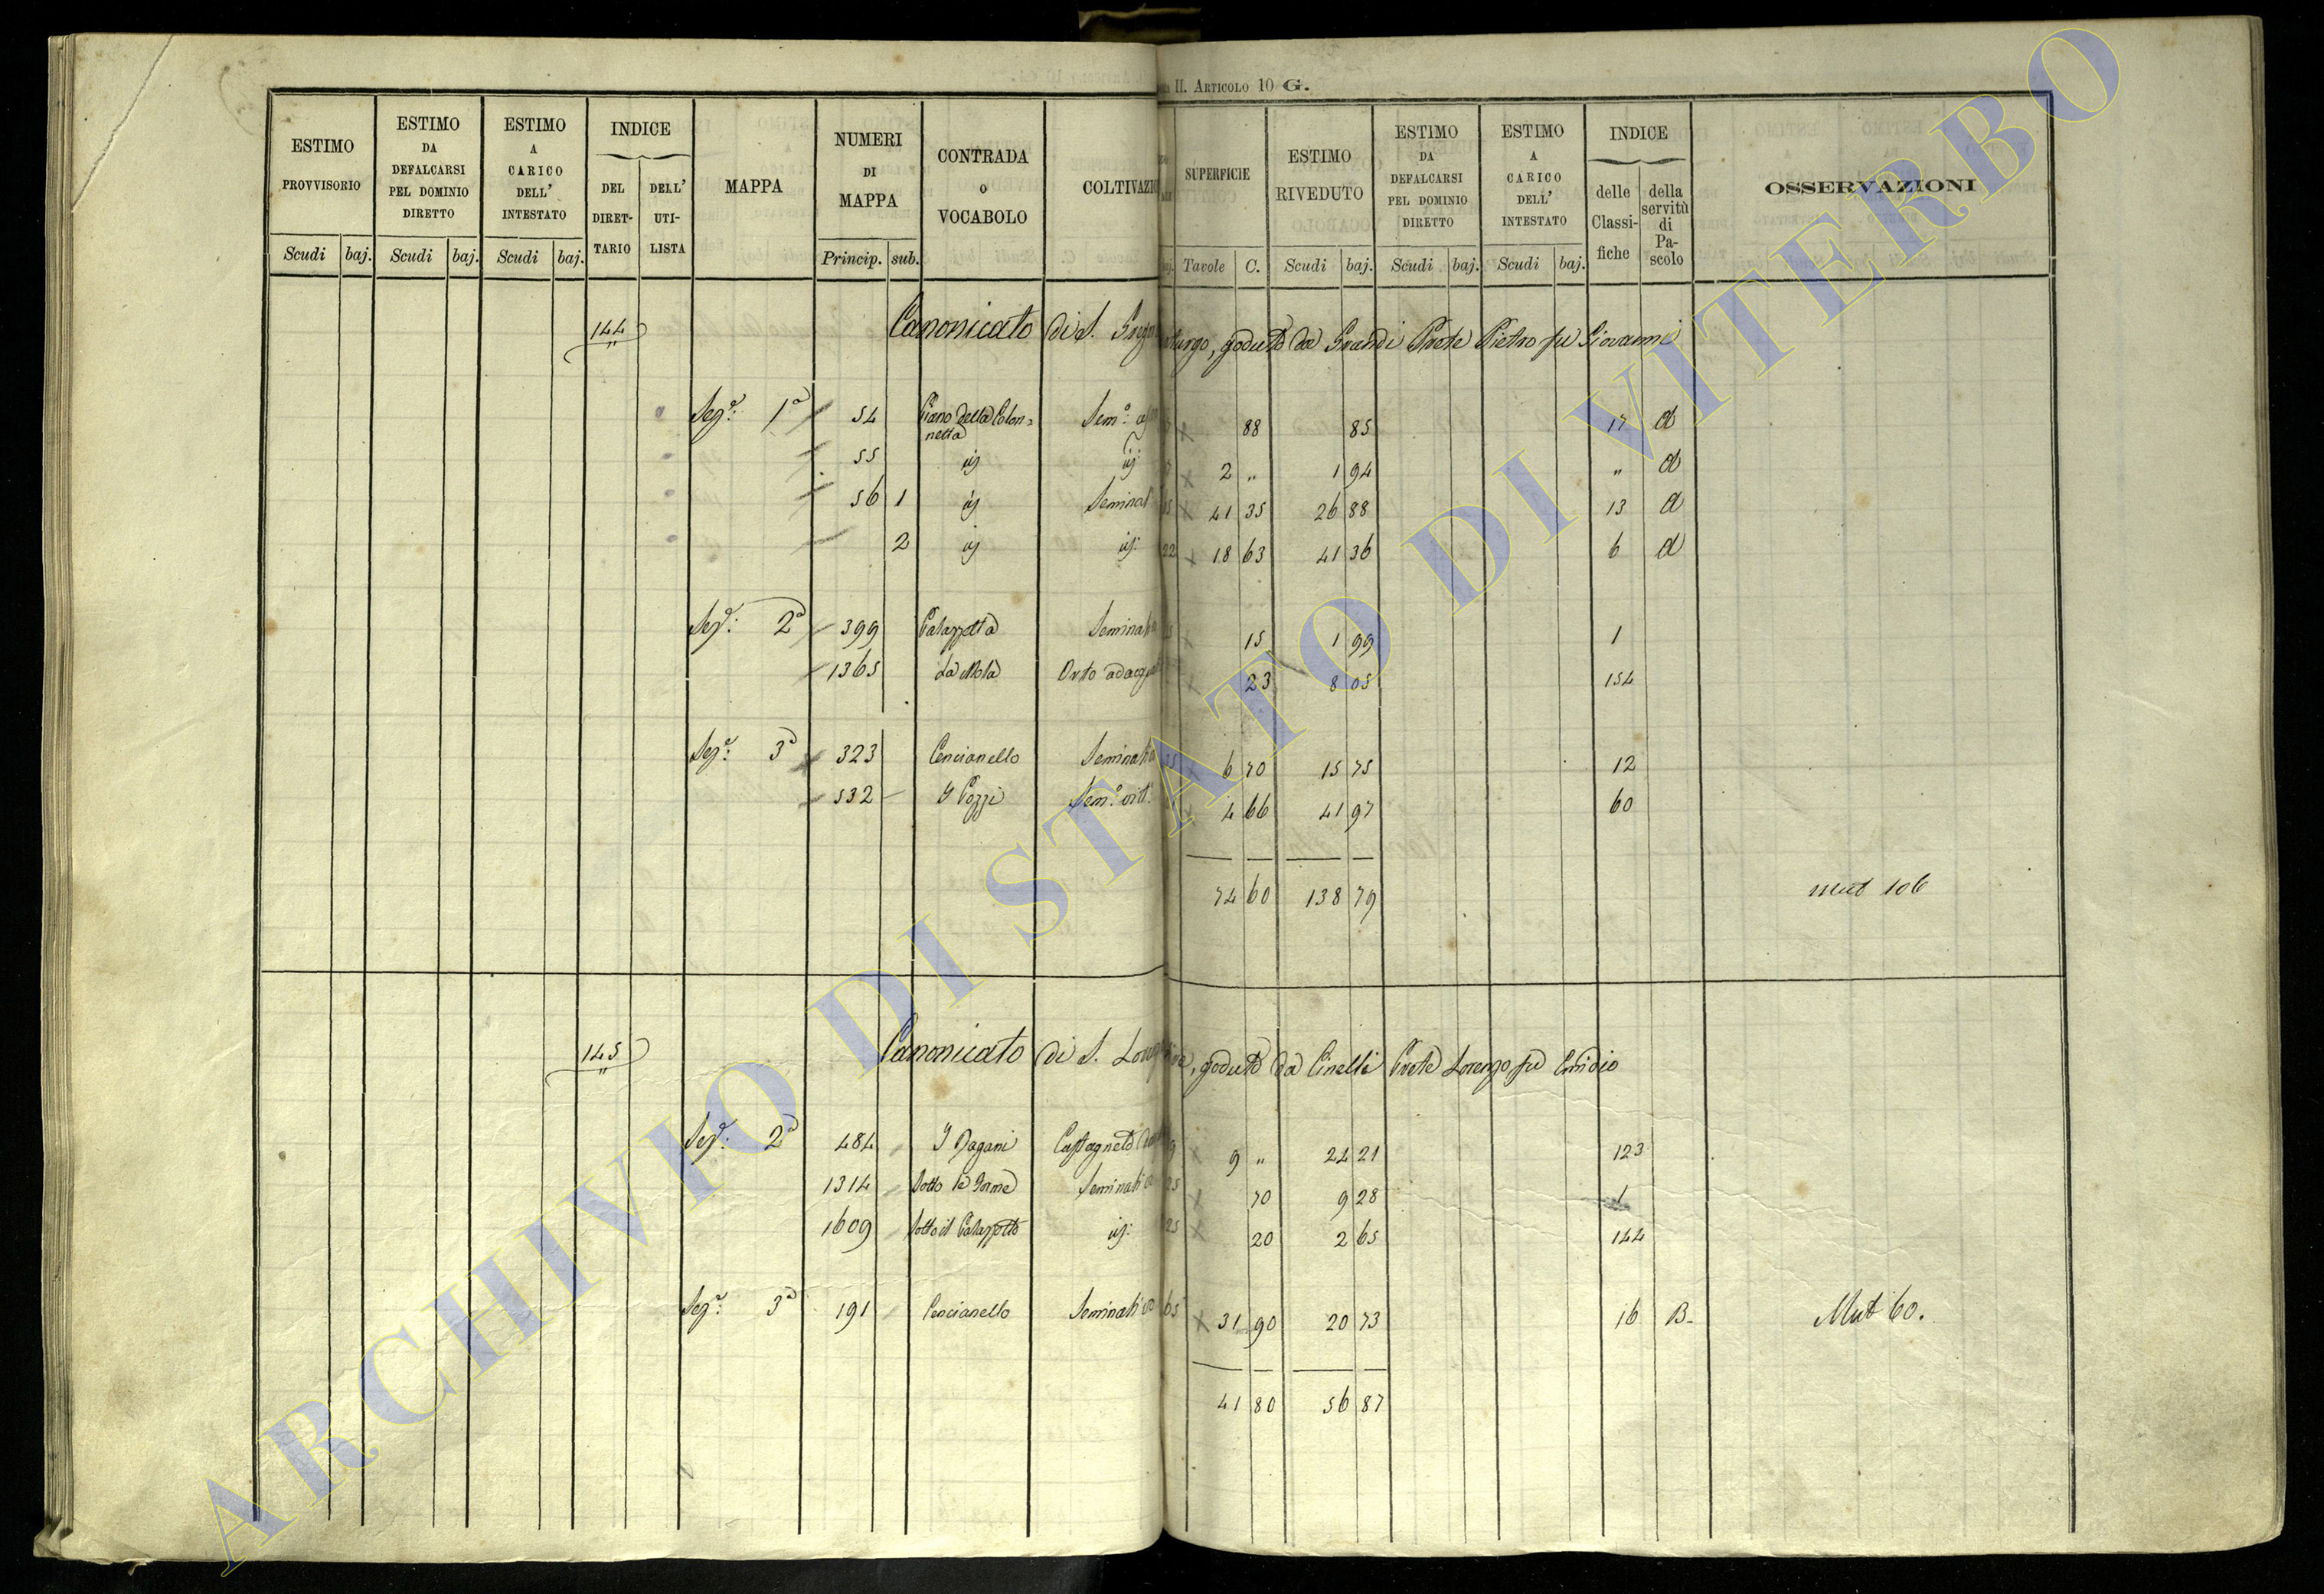 II. ARTICOLO 10 G.
ESTIMO PROVVISORIO
Scudi baj.
ESTIMO DA DEFALCARSI PEL DOMINIO DIRETTO
Scudi baj.
ESTIMO A CARICO DELL' INTESTATO
Scudi baj.
INDICE
DEL DIRET-TARIO
DELL' UTI-LISTA
MAPPA
NUMERI DI MAPPA
Princip. sub.
CONTRADA o VOCABOLO
COLTIVAZIO
SUPERFICIE
Tavole C.
ESTIMO RIVEDUTO
Scudi baj.
ESTIMO DA DEFALCARSI PEL DOMINIO DIRETTO
Scudi baj.
ESTIMO A CARICO DELL' INTESTATO
Scudi baj.
INDICE
delle Classi-fiche
della servitù di Pa-scolo
OSSERVAZIONI
144 Canonicato di S. Grego turgo, goduto da Grandi Prete Pietro fu Giovanni
Sez.e 1a 54 Piano della Colon= Sem.o 88 85 17 a
netta
55 id 2 " 1 94 " a
56 1 id Seminat 41 35 26 88 13 a
2 id id: 18 63 41 36 6 a
Sez.e 2a 399 Palazzetta Seminati 15 1 99 1
1365 La Mola Orto adacq 23 8 05 154
Sez.e 3a 323 Cencianello Seminati 6 70 15 75 12
532 I Pozzi Sem.o vitt. 4 66 41 97 60
74 60 138 79 mut 106
145 Canonicato di S. Lon , goduto da Cinelli Prete Lorenzo fu Emidio
Sez.e 2a 484 I Pagani Castagneto 9 " 24 21 123
1314 Sotto le Forme Seminativo 70 9 28 1
1609 Sotto il Palazzetto id: 20 2 65 144
Sez.e 3a 191 Cencianello Seminativo 31 90 20 73 16 B-
Mut 60.
41 80 56 87
ARCHIVIO DI STATO DI VITERBO